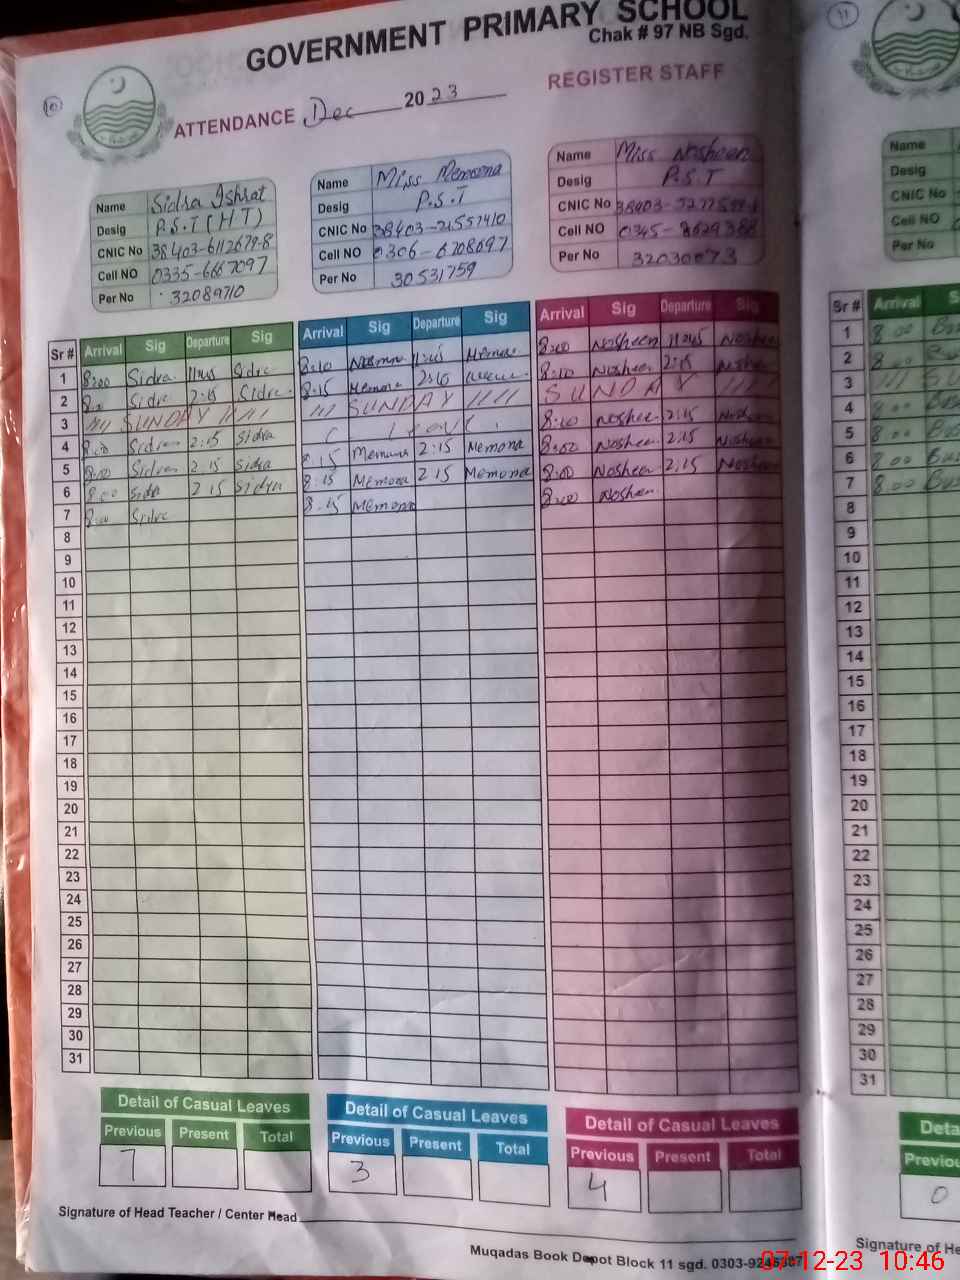 GOVERNMENT PRIMARY SCHOOL
Chak # 97 NB Sgd.
10
ATTENDANCE Dec 2023 REGISTER STAFF
Name Sidra Ishrat
Desig P.S.T (HT)
CNIC No 38403-6112679-8
Cell NO 0335-6667097
Per No 32089710
Name Miss Memona
Desig P.S.T
CNIC No
Cell NO 0306-6708697
Per No 30531759
Name Miss Nosheen
Desig P.S.T
CNIC No
Cell NO
Per No 32030073
Sr # Arrival Sig Departure Sig Arrival Sig Departure Sig Arrival Sig Departure Sig
1 8:00 Sidra 11:45 Sidra 8:10 Memona 11:45 Memona 8:00 Nosheen 11:45 Nosheen
2 Sidra 2:15 Sidra 8:15 Memona 8:10 Nosheen 2:15 Nosheen
3 SUNDAY SUNDAY SUNDAY
4 8:00 Sidra 2:15 Sidra Leave Nosheen 2:15 Nosheen
5 8:00 Sidra 2:15 Sidra 8:15 Memona 2:15 Memona 8:00 Nosheen 2:15 Nosheen
6 8:00 Sidra 2:15 Sidra 8:15 Memona 2:15 Memona 8:00 Nosheen 2:15 Nosheen
7 8:00 Sidra 8:15 Memona 8:00 Nosheen
8
9
10
11
12
13
14
15
16
17
18
19
20
21
22
23
24
25
26
27
28
29
30
31
Detail of Casual Leaves Detail of Casual Leaves Detail of Casual Leaves
Previous Present Total Previous Present Total Previous Present Total
7 3 4
Signature of Head Teacher / Center Head
Muqadas Book Depot Block 11 sgd.
11
Name
Desig
CNIC No
Cell NO
Per No
Sr # Arrival
1 8:00
2
3
4 8:00
5 8:00
6 8:00
7 8:00
8
9
10
11
12
13
14
15
16
17
18
19
20
21
22
23
24
25
26
27
28
29
30
31
0
Signature of
07-12-23 10:46